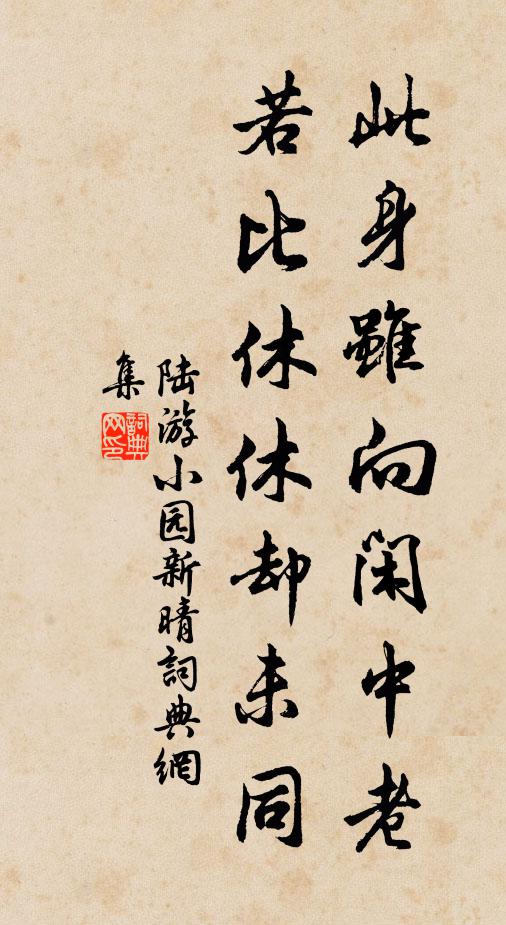 此身雖向閑中老
若比休休却未同
陆游小园新晴詞典網
集
詞典
网印